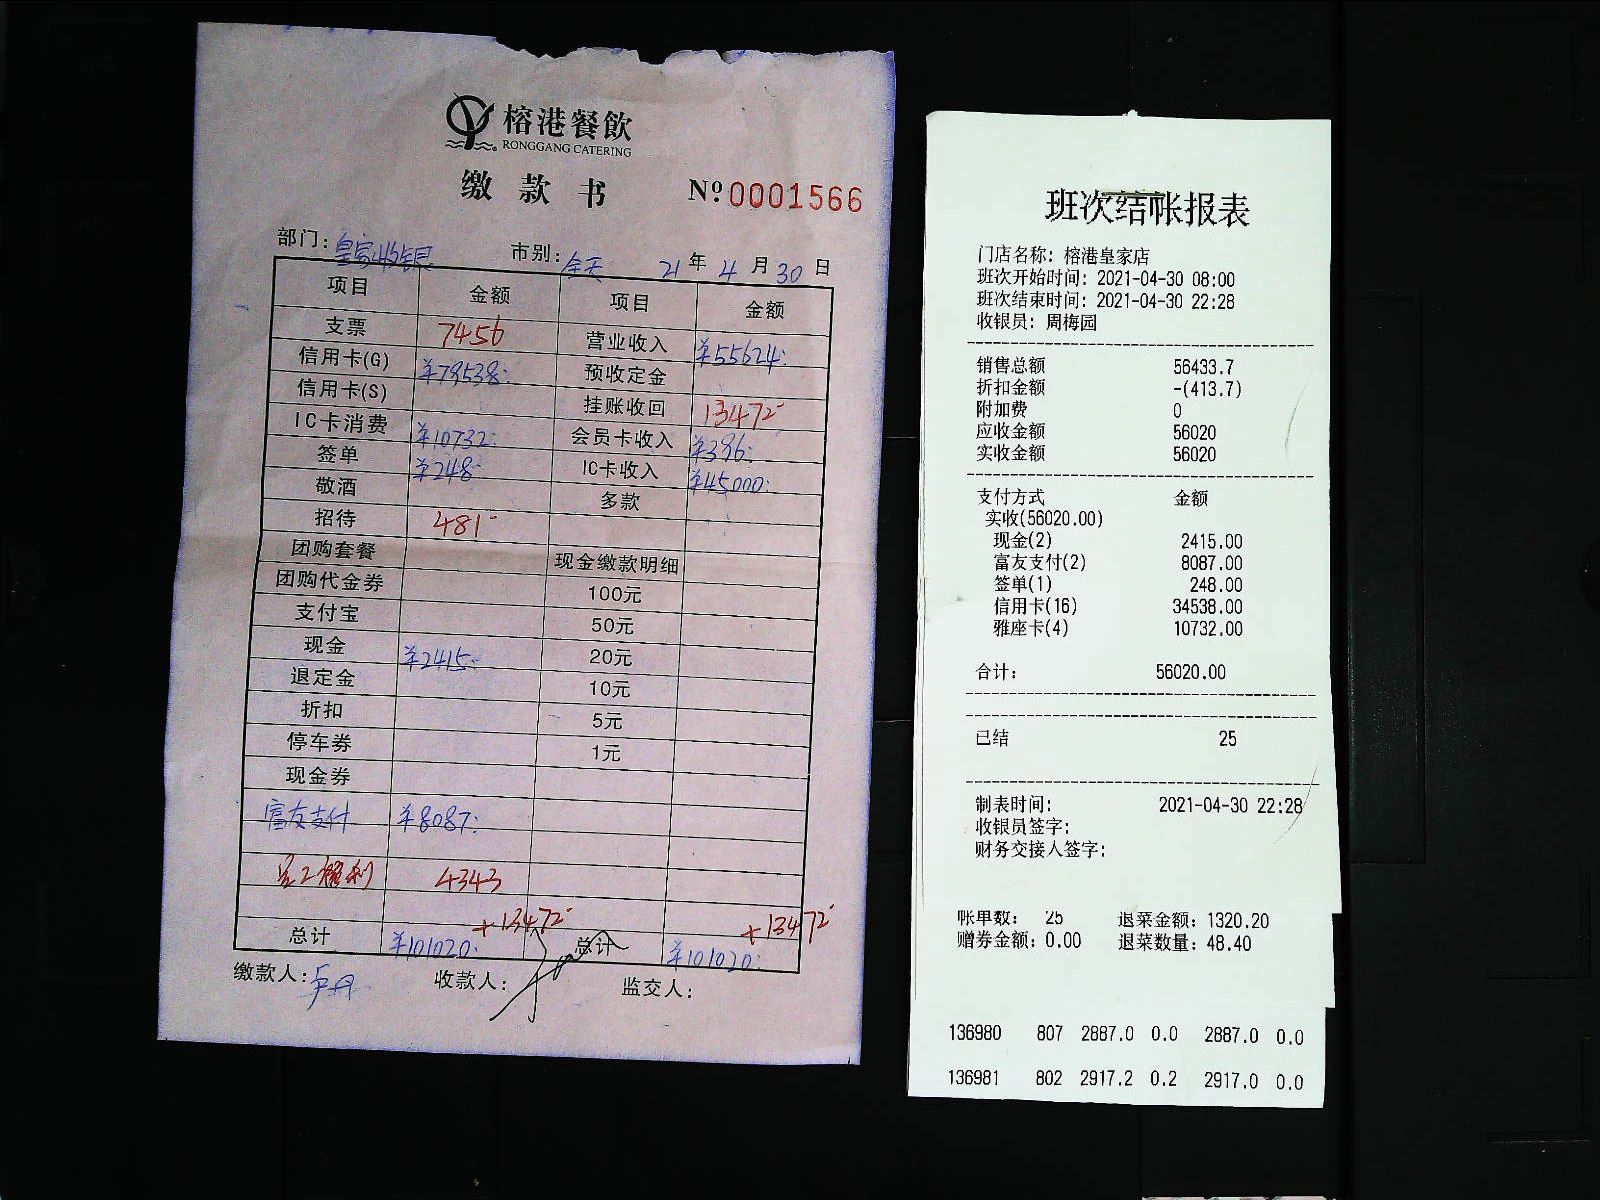 榕港餐飲
RONGGANG CATERING
缴款书 Nº:0001566
部门:皇家收银 市别:全天 21年4月30日
项目 金额 项目 金额
支票 7456 营业收入 ¥55624.
信用卡(G) ¥79538. 预收定金
信用卡(S) 挂账收回 13472
IC卡消费 ¥10732. 会员卡收入 ¥396.
签单 ¥248. IC卡收入 ¥45000.
敬酒 多款
招待 481
团购套餐 现金缴款明细
团购代金券 100元
支付宝 50元
现金 ¥2415. 20元
退定金 10元
折扣 5元
停车券 1元
现金券
富友支付 ¥8087.
员工福利 4343
+13472 +13472
总计 ¥101020. 总计 ¥101020.
缴款人:卢丹 收款人: 监交人:
班次结帐报表
门店名称: 榕港皇家店
班次开始时间: 2021-04-30 08:00
班次结束时间: 2021-04-30 22:28
收银员: 周梅园
销售总额 56433.7
折扣金额 -(413.7)
附加费 0
应收金额 56020
实收金额 56020
支付方式 金额
实收(56020.00)
现金(2) 2415.00
富友支付(2) 8087.00
签单(1) 248.00
信用卡(16) 34538.00
雅座卡(4) 10732.00
合计: 56020.00
已结 25
制表时间: 2021-04-30 22:28
收银员签字:
财务交接人签字:
帐单数: 25 退菜金额: 1320.20
赠券金额: 0.00 退菜数量: 48.40
136980 807 2887.0 0.0 2887.0 0.0
136981 802 2917.2 0.2 2917.0 0.0